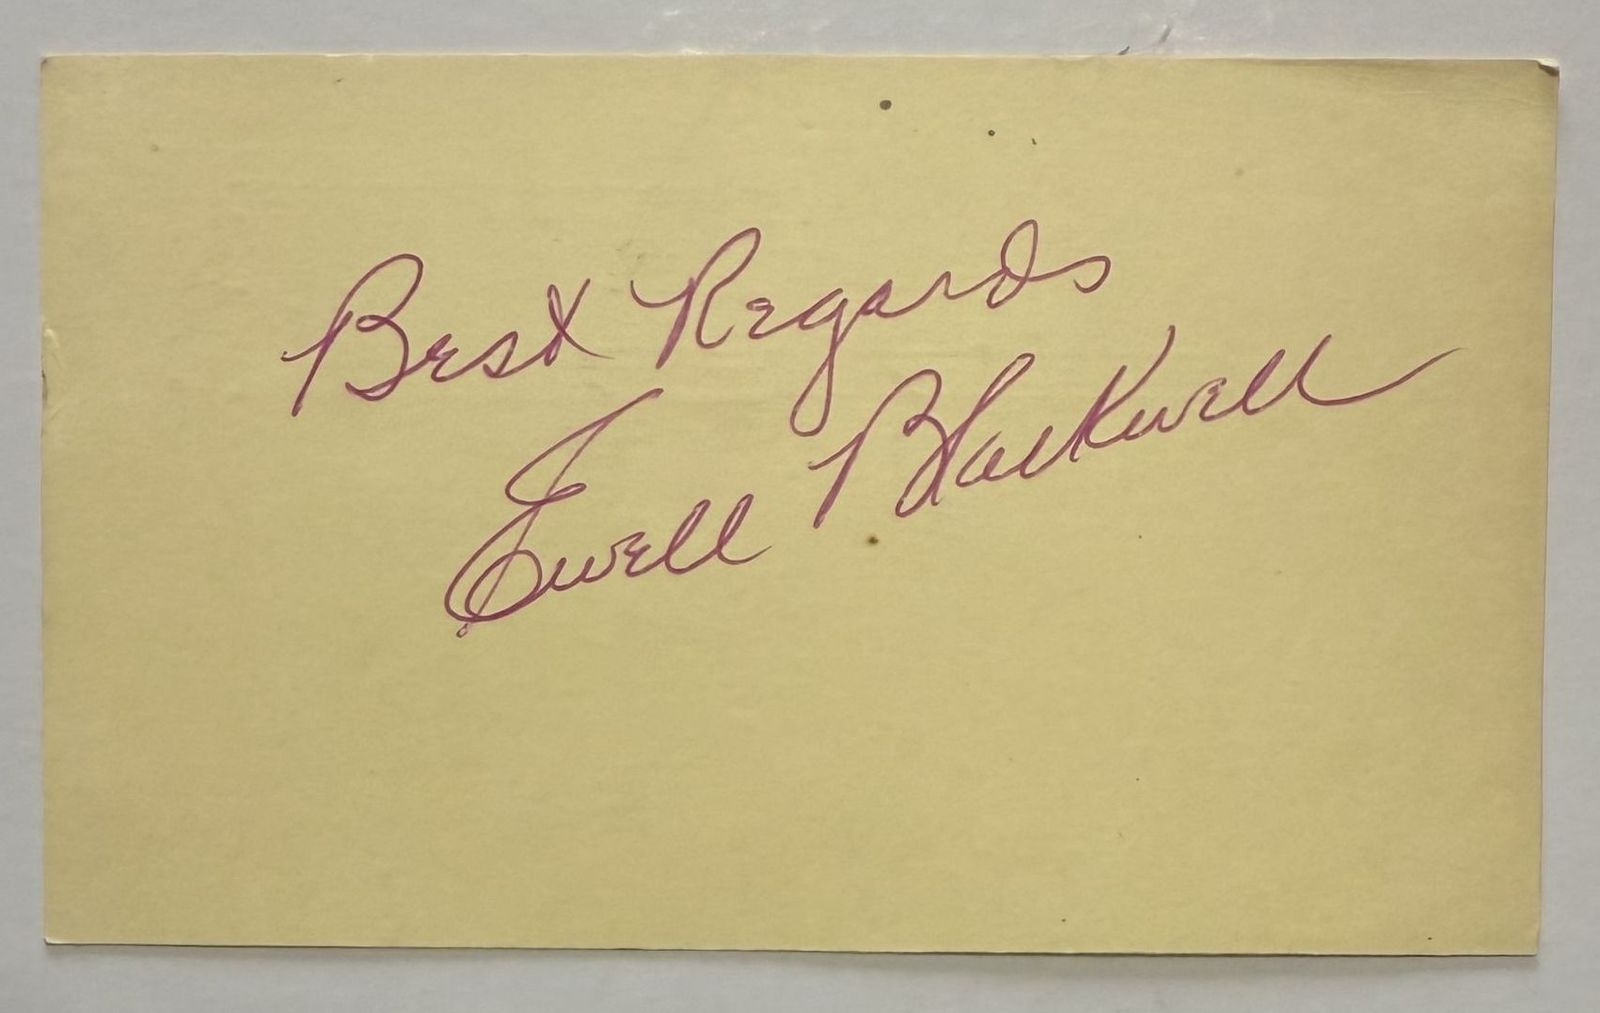 Best Regards
Ewell Blackwell